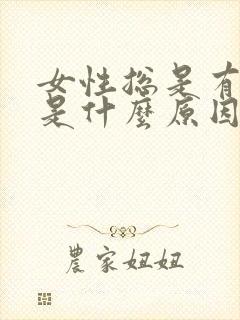 女性总是有
是什麼原因
農家妞妞